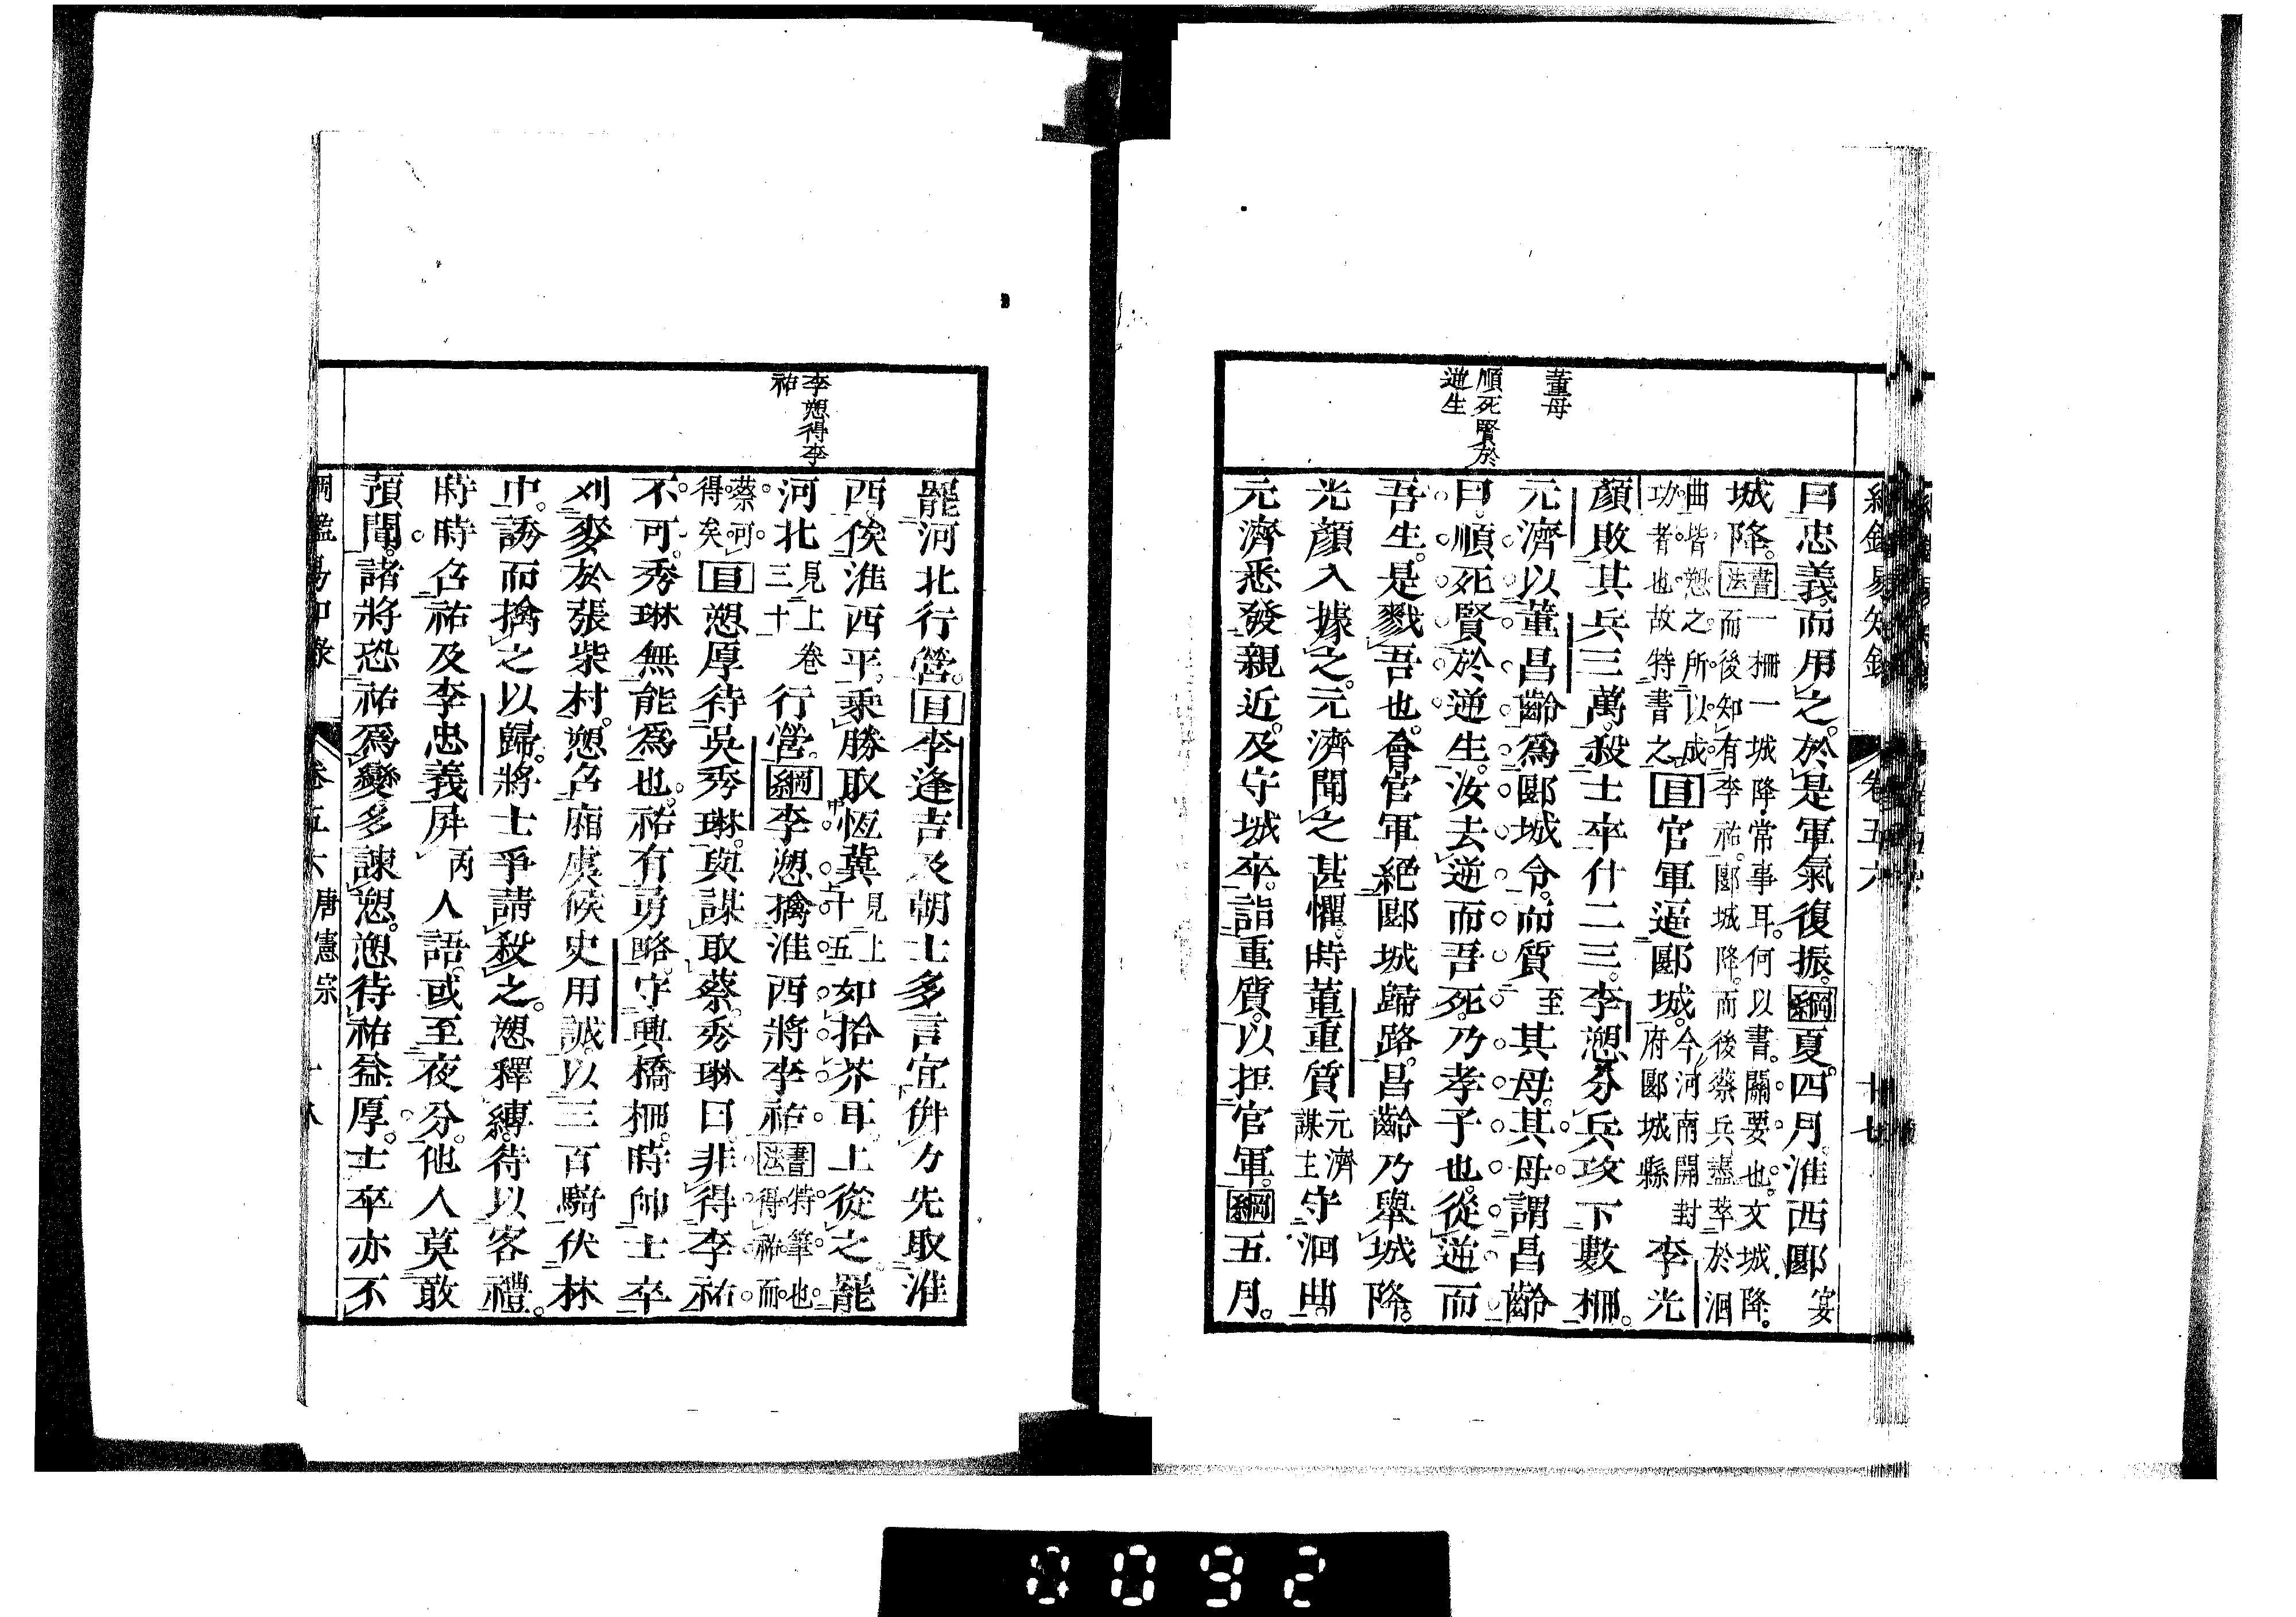 董母
順死賢於
逆生
曰忠義而用之。於是軍氣復振。綱夏。四月。淮西郾宴
城降。書法一柵一城降。常事耳。何以書。關要也。文城降。
而後知有李祐。郾城降。而後蔡兵盡萃於洄
曲。皆愬之所以成
功者也。故特書之
目官軍逼郾城。今河南開封
府郾城縣
李光
顏敗其兵三萬。殺士卒什二三。李愬分兵攻下數柵。
元濟以董昌齡爲郾城令。而質至其母。其母謂昌齡
曰。順死賢於逆生。汝去逆而吾死。乃孝子也。從逆而
吾生。是戮吾也。會官軍絕郾城歸路。昌齡乃舉城降。
光顏入據之。元濟聞之甚懼。時董重質元濟
謀主
守洄曲。
元濟悉發親近。及守城卒。詣重質。以拒官軍。綱五月。
卷五六 廿七
李愬得李
祐
罷河北行營。目李逢吉及朝士多言宜併力先取淮
西。俟淮西平。乘勝取恆冀見上
十五
如拾芥耳。上從之。罷
河北見上卷
三十
行營。綱李愬擒淮西將李祐。書法特筆也。
得祐而
蔡可
得矣
目愬厚待吳秀琳。與謀取蔡。秀琳曰。非得李祐
不可。秀琳無能爲也。祐有勇略。守興橋柵。時帥士卒
刈麥於張柴村。愬召廂虞候史用誠。以三百騎伏林
中。誘而擒之以歸。將士爭請殺之。愬釋縛。待以客禮。
時時召祐及李忠義屏丙人語。或至夜分。他人莫敢
預聞。諸將恐祐爲變。多諫愬。愬待祐益厚。士卒亦不
綱鑑易知錄 卷五六 唐憲宗
0092